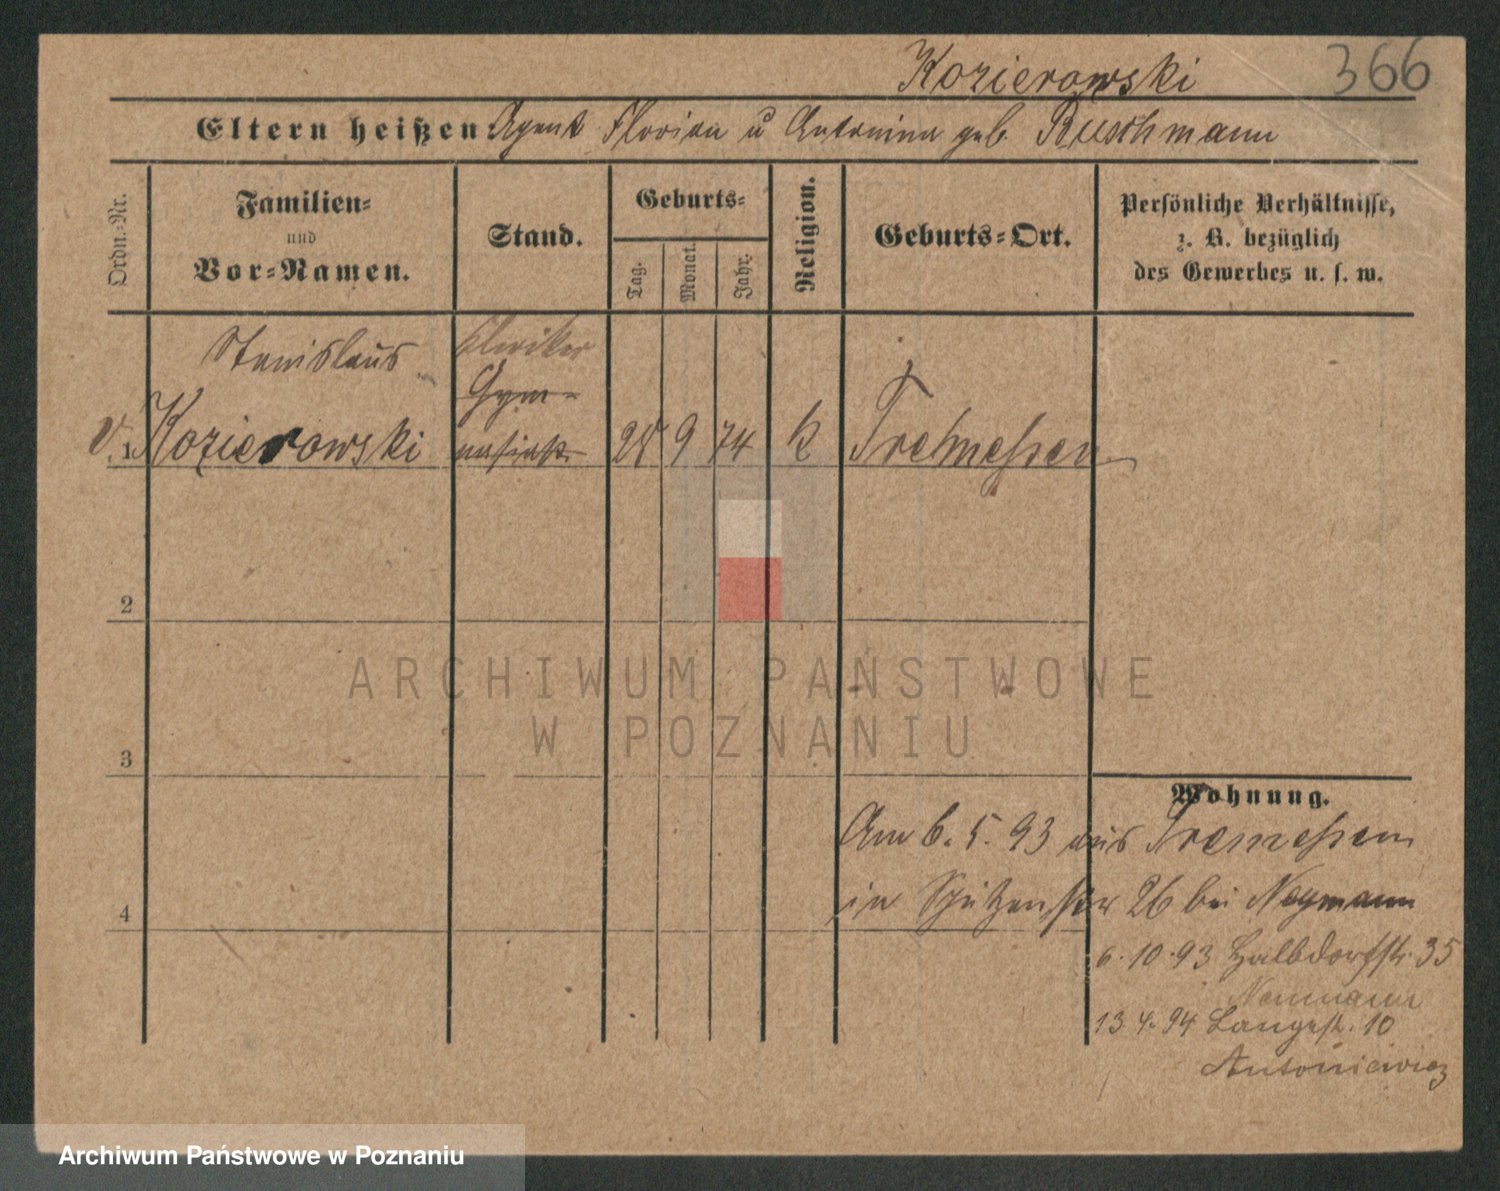 Kozierowski 366
Eltern heißen: Agent Florian u Antonina geb. Buschmann
Ordn.-Nr.
Familien-
und
Vor-Namen.
Stand.
Geburts-
Tag.
Monat.
Jahr.
Religion.
Geburts-Ort.
Persönliche Verhältnisse,
z. B. bezüglich
des Gewerbes u. s. w.
Stanislaus
Kleriker
Gym-
V. 1. Kozierowski nasiast. 28 9 74 k Tremessen
2
ARCHIWUM PAŃSTWOWE
W POZNANIU
3
Wohnung.
Am 6. 5. 93 aus Tremessen
in Schützenstr 26 bei Neymann
4
6. 10. 93 Halbdorfstr. 35
Neumann
13 4. 94 Langestr. 10
Antoniewicz
Archiwum Państwowe w Poznaniu